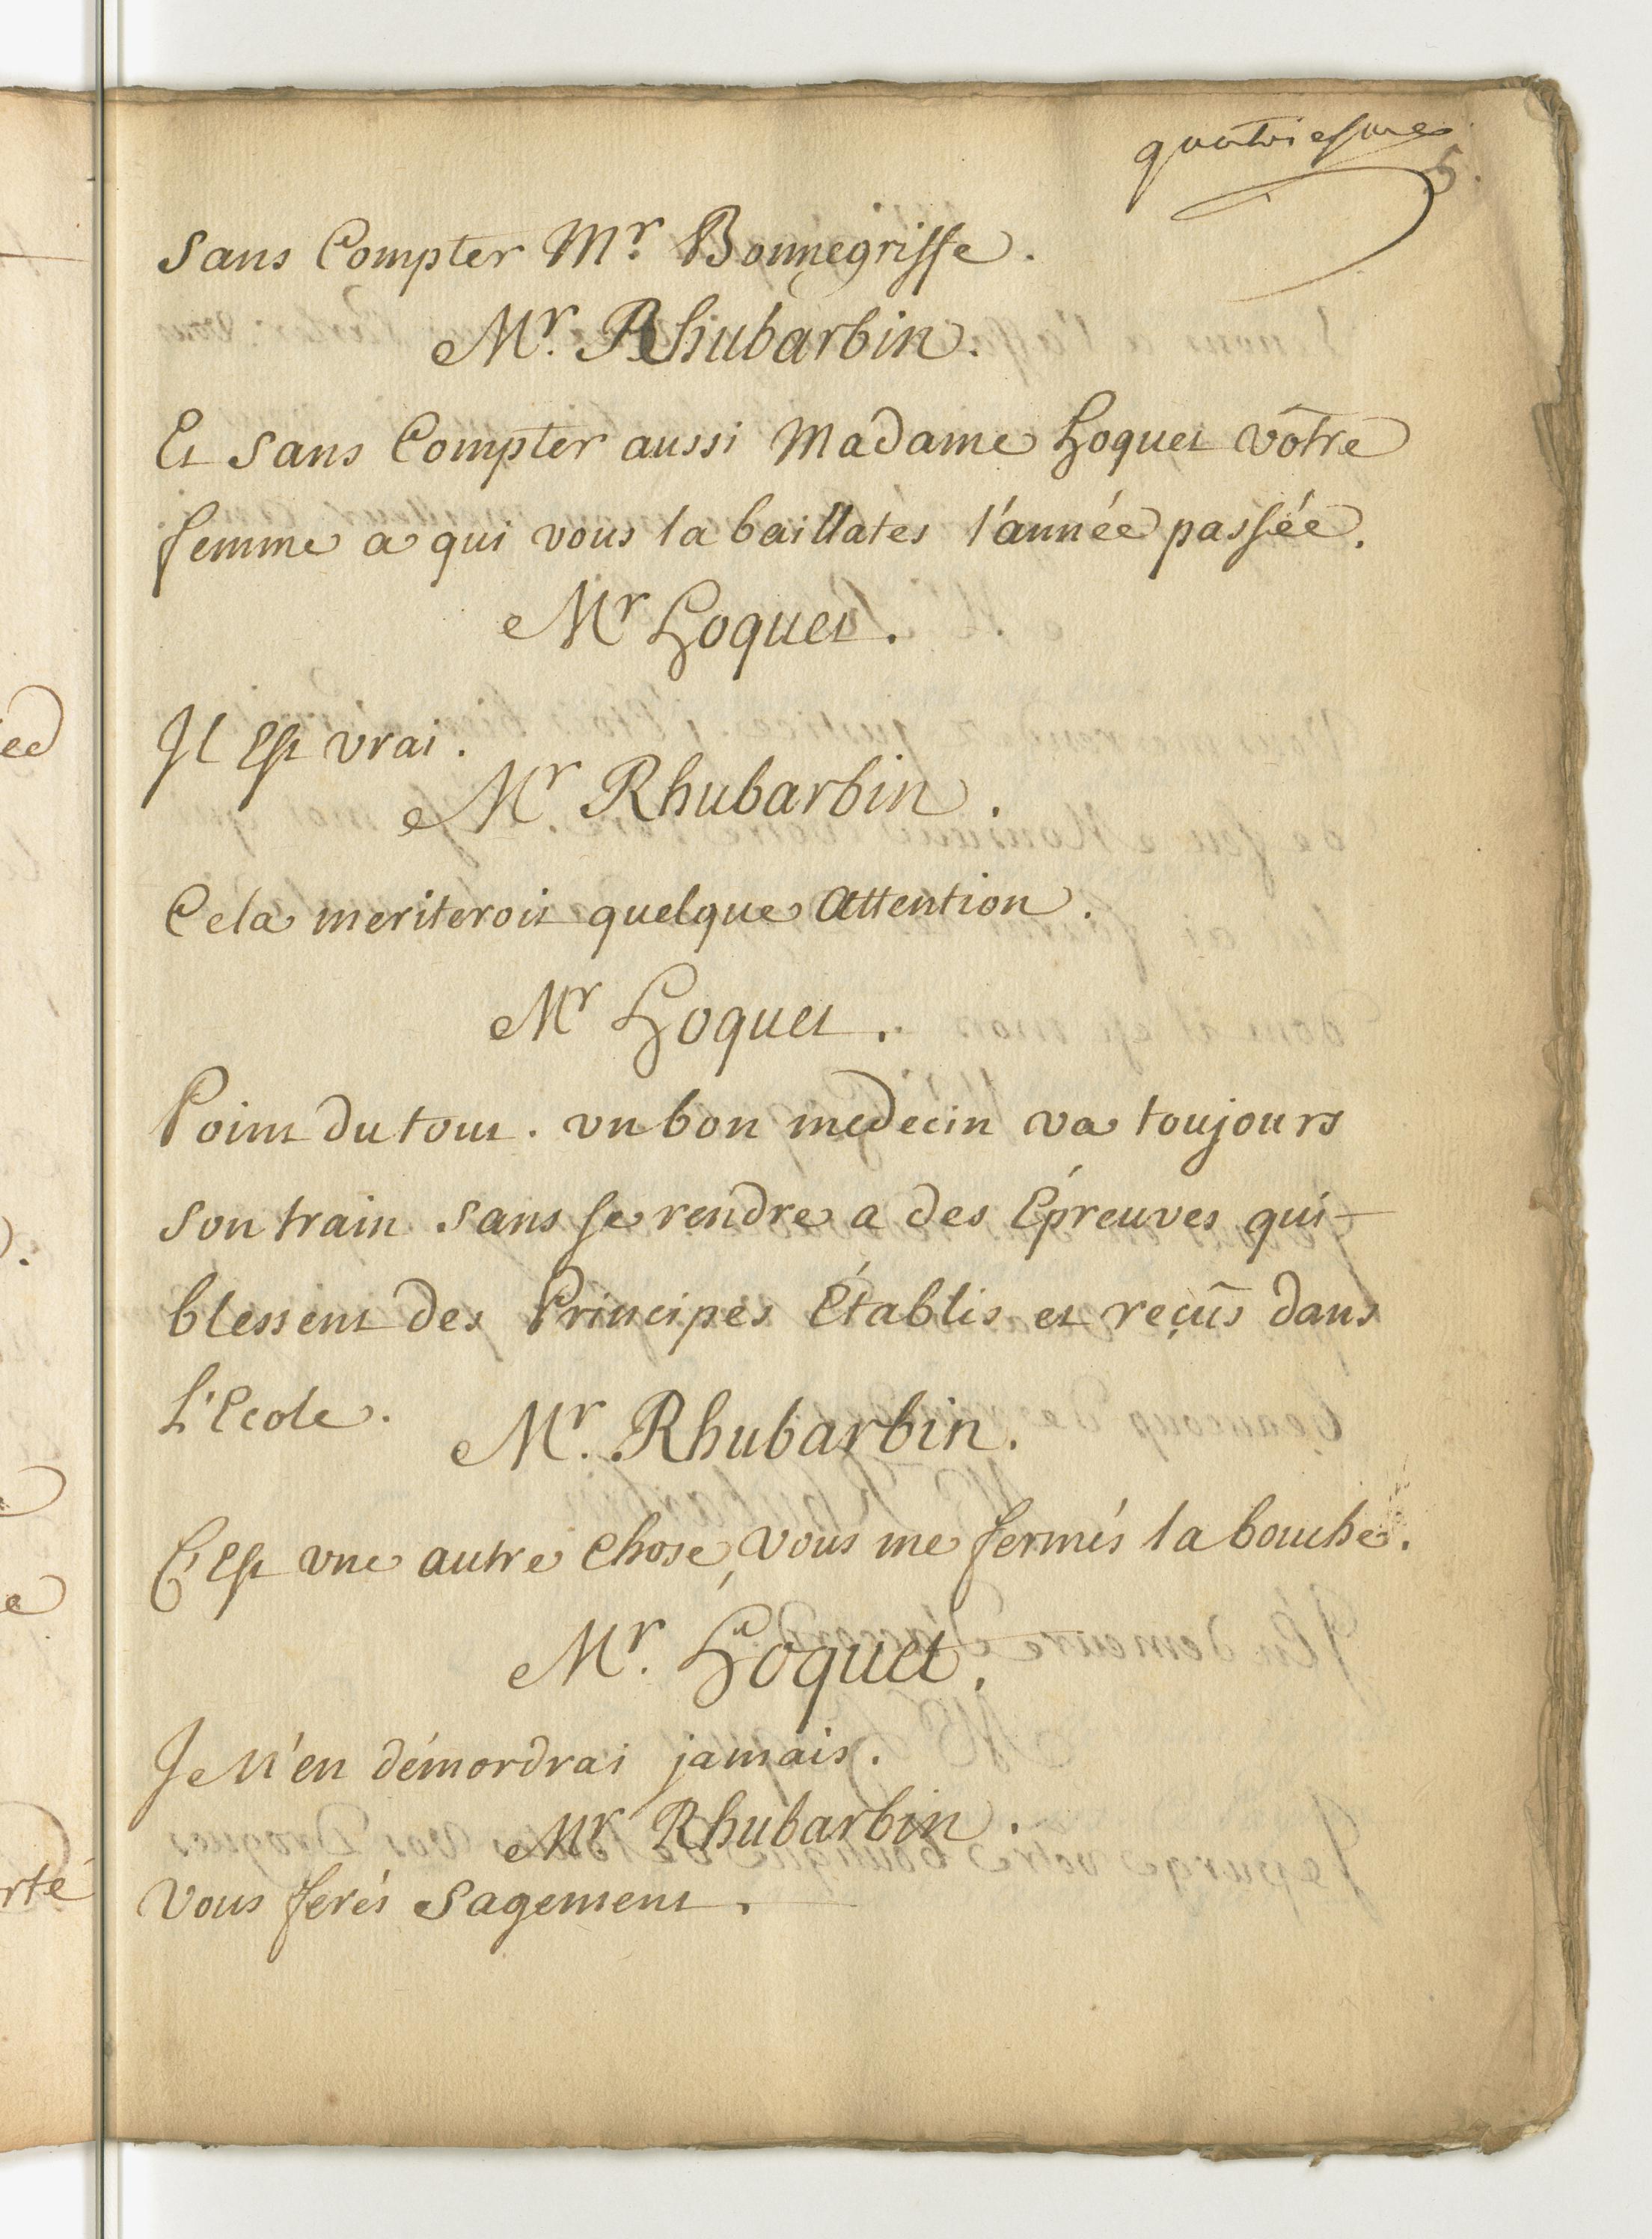 quatriesme
5.
Sans Compter Mr. Bonnegriffe.
Mr. Rhubarbin.
Et Sans Compter aussi Madame Hoquet vôtre
femme a qui vous la baillates l'année passée.
Mr Hoquet.
Il Est vrai.
Mr. Rhubarbin.
Cela meriteroit quelque Attention.
Mr Hoquet.
Point du tout. un bon medecin va toujours
Son train Sans se rendre a des Épreuves qui
blessent des Principes Établis et reçûs dans
L'Ecole.
Mr. Rhubarbin.
C'Est une autre Chose, vous me fermés la bouche.
Mr. Hoquet.
Je N'en démordrai jamais.
Mr Rhubarbin.
Vous ferés Sagement.